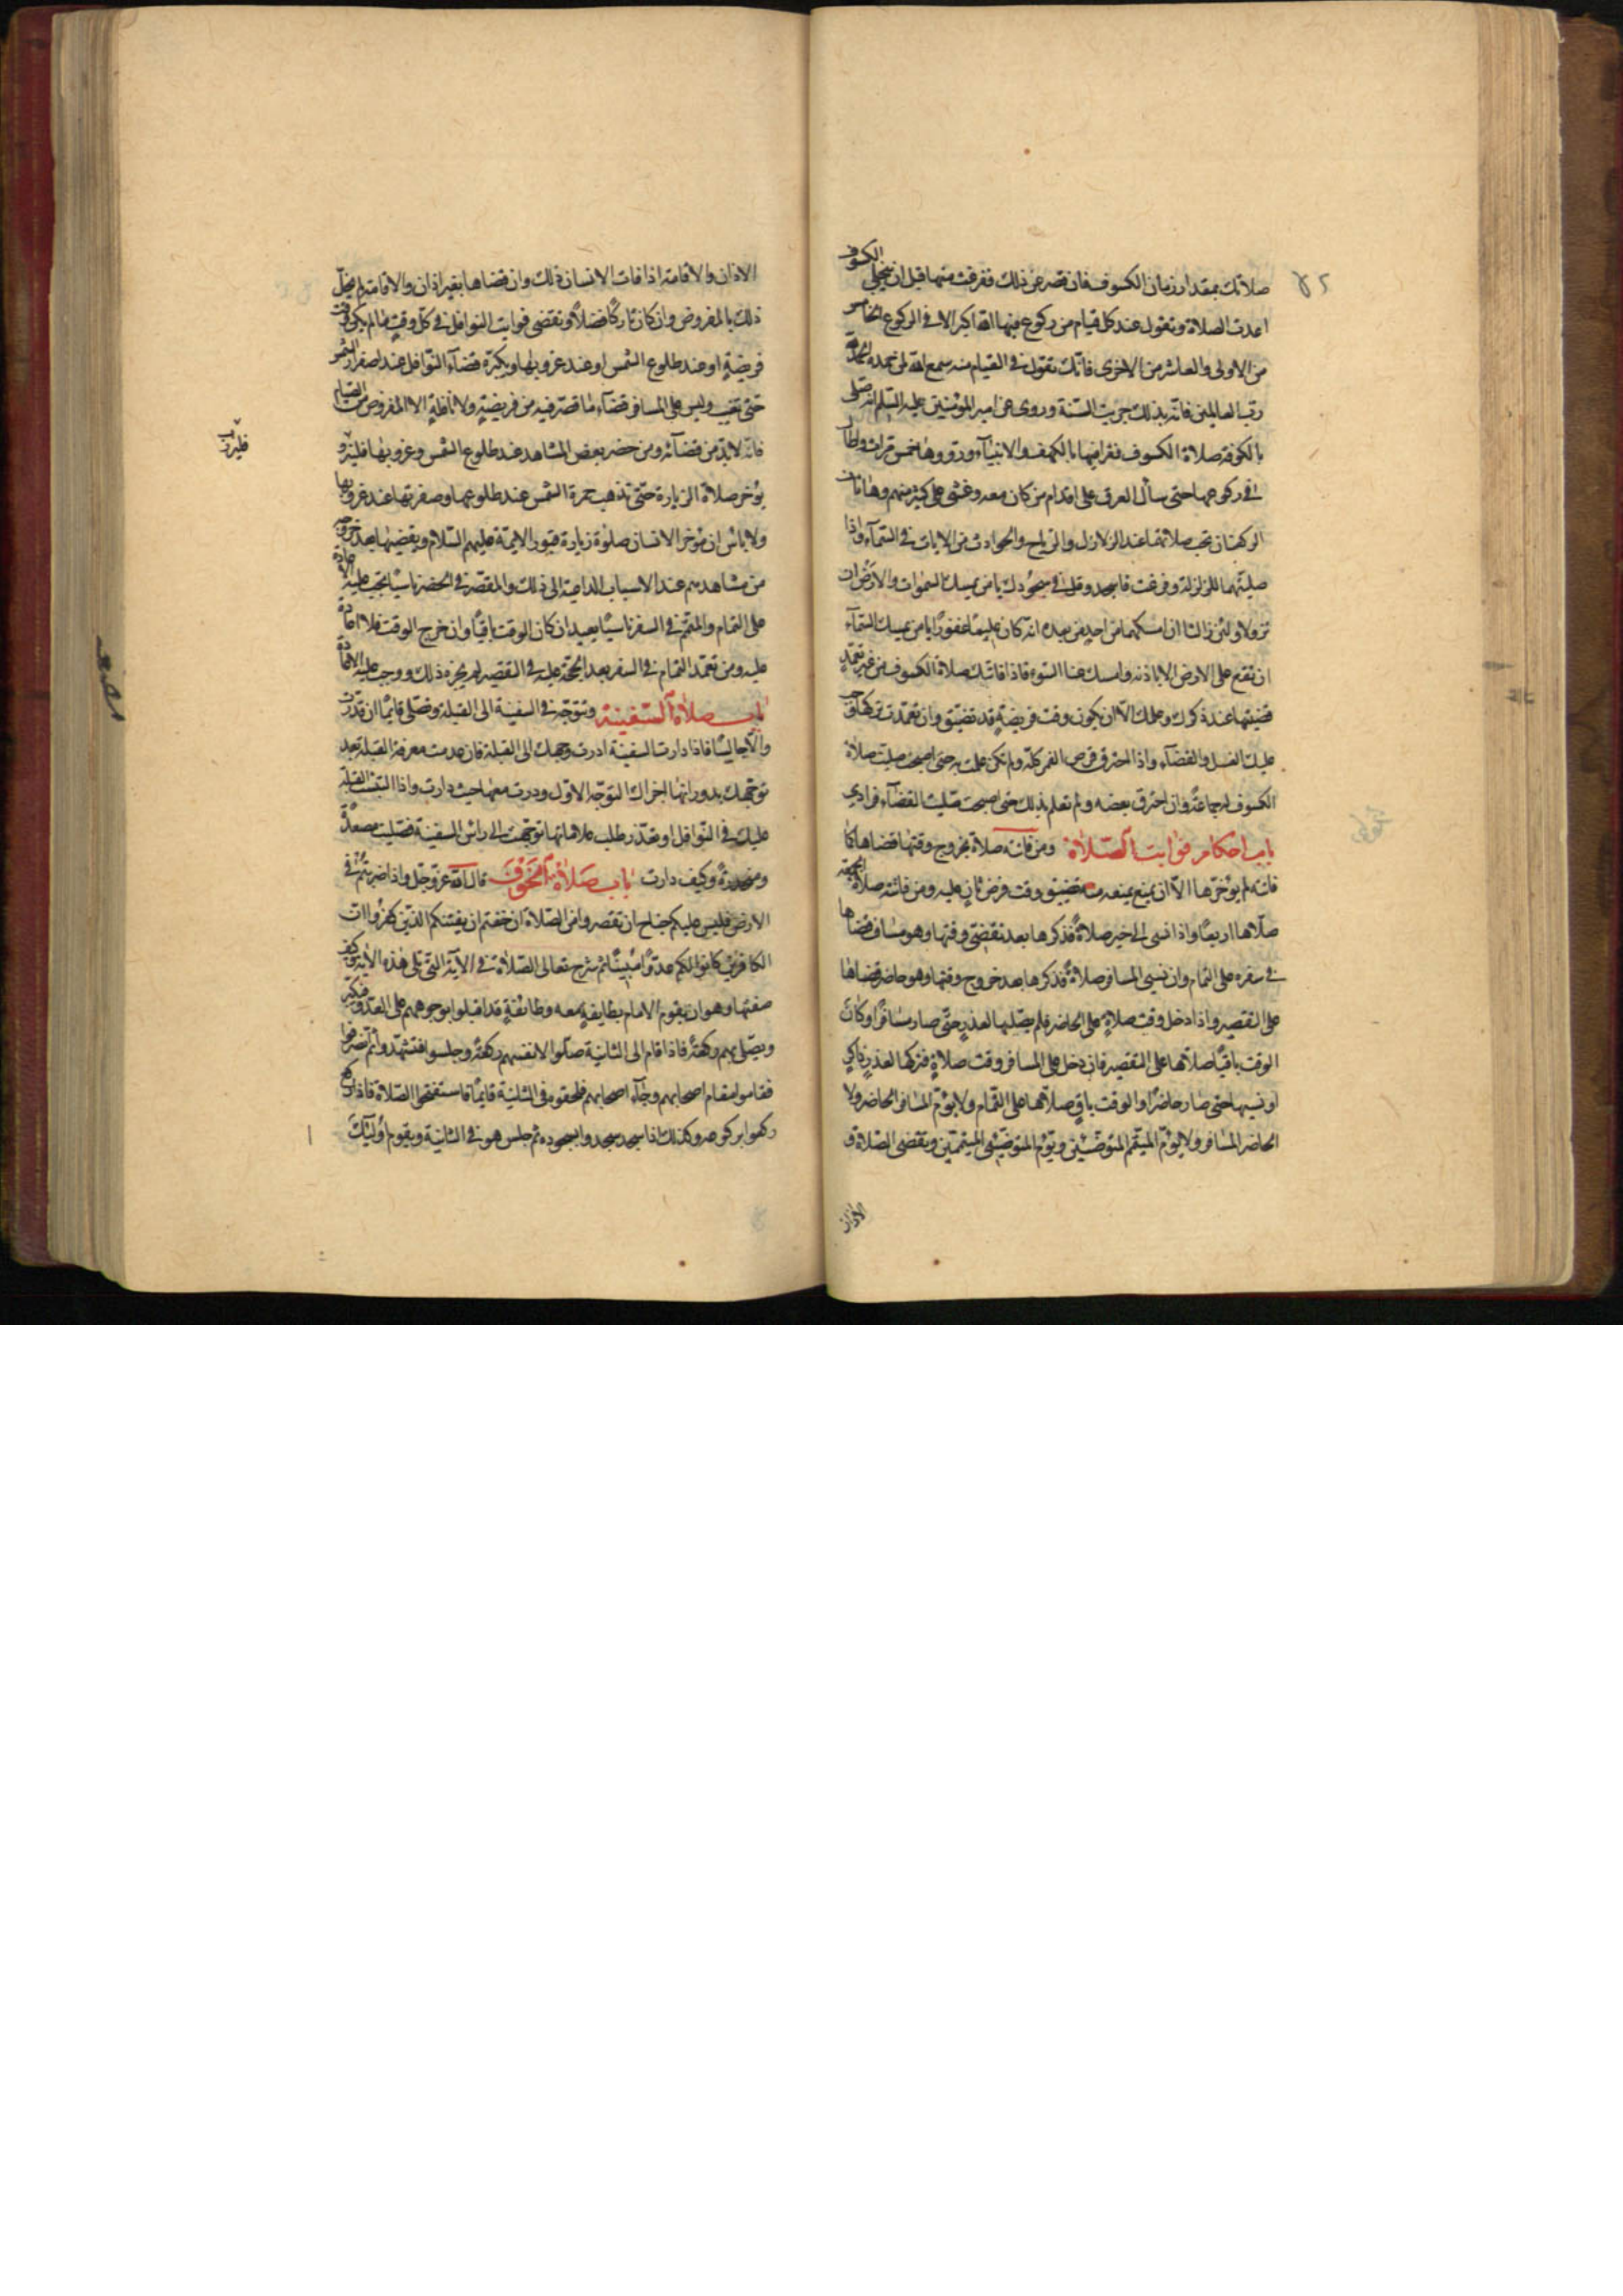 صلاتك بمقدار زمان الكسوف فان قصر عن ذلك ففرغت منها قبل ان ينجلي الكسوف
اعدت الصلاة وتقول عند كل قيام من ركوع فيها الله اكبر الا فى الركوع الخامس
من الاولى والعاشر من الاخرى فانك تقول فى القيام منه سمع الله لمن حمده الحمد لله
رب العالمين فانه بذلك جرت السنة وروى عن امير المؤمنين عليه السلم انه صلى
بالكوفة صلاة الكسوف فقرا فيها بالكهف والانبياء ورددها خمس مرات واطال
فى ركوعها حتى سال العرق على اقدام من كان معه وغشى على كثير منهم وهاتان
الركعتان تجب صلاتهما عند الزلازل والرياح والحوادث من الايات فى السماء واذا
صليتهما للزلزلة وفرغت فاسجد وقل فى سجودك يا من يمسك السموات والارض ان
تزولا ولئن زالتا ان امسكهما من احد من بعده انه كان حليما غفورا يا من يمسك السماء
ان تقع على الارض الا باذنه وامسك عنا السوء فاذا فاتتك صلاة الكسوف من غير تعمد
قضيتها عند ذكرك وعلمك الا ان يكون وقت فريضة قد تضيق وان تعمدت تركها وجب
عليك الغسل والقضاء واذا احترق قرص القمر كله ولم تكن علمت به حتى اصبحت صليت صلاة
الكسوف له جماعة وان احترق بعضه ولم تعلم بذلك حتى اصبحت صليت القضاء فرادى
باب احكام فوايت الصلاة ومن فاتته صلاة بخروج وقتها قضاها كما
فاتته لم يؤخرها الا ان يمنع يمنعه تضييق وقت فرض ثان عليه ومن فاتته صلاة الجمعة
صلاها اربعا واذا نسى الحاضر صلاة فذكرها بعد تقضى وقتها وهو مسافر قضاها
فى سفره على التمام وان نسى المسافر صلاة فذكرها بعد خروج وقتها وهو حاضر قضاها
على التقصير واذا دخل وقت صلاة على الحاضر فلم يصلها لعذر حتى صار مسافرا وكان
الوقت باقيا صلاها على التقصير فان دخل على المسافر وقت صلاة فتركها لعذر ذاكر
او نسيها حتى صار حاضرا والوقت باق صلاها على التمام ولا يؤم المسافر الحاضر ولا
الحاضر المسافر ولا يؤم المتيمم المتوضئين ويؤم المتوضئ المتيممين وتقضى الصلاة و
الاذان
الاذان والاقامة اذا فات الانسان ذلك وان قضاها بغير اذان والاقامة لم يخل
ذلك بالمفروض وان كان تاركا فضلا وتقضى فوايت النوافل فى كل وقت ما لم يكن وقت
فريضة او عند طلوع الشمس او عند غروبها ويكره قضاء النوافل عند اصفرار الشمس
حتى تغيب وليس على المسافر قضاء ما قصر فيه من فريضة ولا نافلة الا المفروض من الصيام
فانه لابد من قضائه ومن حضر بعض المشاهد عند طلوع الشمس وغروبها فليزر و
يؤخر صلاة الزيارة حتى تذهب حمرة الشمس عند طلوعها وصفرتها عند غروبها
ولا باس ان يؤخر الانسان صلوة زيارة قبور الايمة عليهم السلام ويقضيها بعد خروجه
من مشاهدهم عند الاسباب الداعية الى ذلك والمقصر فى الحضر ناسيا يجب عليه الاعادة
على التمام والمتمم فى السفر ناسيا يعيد ان كان الوقت باقيا وان خرج الوقت فلا اعادة
عليه ومن تعمد التمام فى السفر بعد الحجة عليه فى التقصير لم يجزه ذلك ووجب عليه الاعادة
باب صلاة السفينة وتتوجه فى السفينة الى القبلة وتصلى قائما ان قدرت
والا جالسا فاذا دارت السفينة ادرت وجهك الى القبلة فان عدمت معرفة القبلة بعد
توجهك بدورانها اجزاك التوجه الاول ودرت معها حيث دارت واذا التبست القبلة
عليك فى النوافل او تعذر طلب علاماتها توجهت الى راس السفينة فصليت مصعدة
ومنحدرة وكيف دارت باب صلاة الخوف قال الله عز وجل واذا ضربتم فى
الارض فليس عليكم جناح ان تقصروا من الصلاة ان خفتم ان يفتنكم الذين كفروا ان
الكافرين كانوا لكم عدوا مبينا ثم شرح تعالى الصلاة فى الآية التى تلى هذه الاية كيف
صفتها وهو ان يقوم الامام بطايفة معه وطائفة قد اقبلوا بوجوههم على العدو فيكبر
ويصلى بهم ركعة فاذا قام الى الثانية صلوا لانفسهم ركعة وجلسوا فتشهدوا ثم انصرفوا
فقاموا مقام اصحابهم وجاء اصحابهم فلحقوه فى الثانية قايما فاستفتحوا الصلاة فاذا ركع
ركعوا بركوعه وكذلك اذا سجد سجدوا بسجوده ثم جلس هو فى الثانية ويقوم اولئك